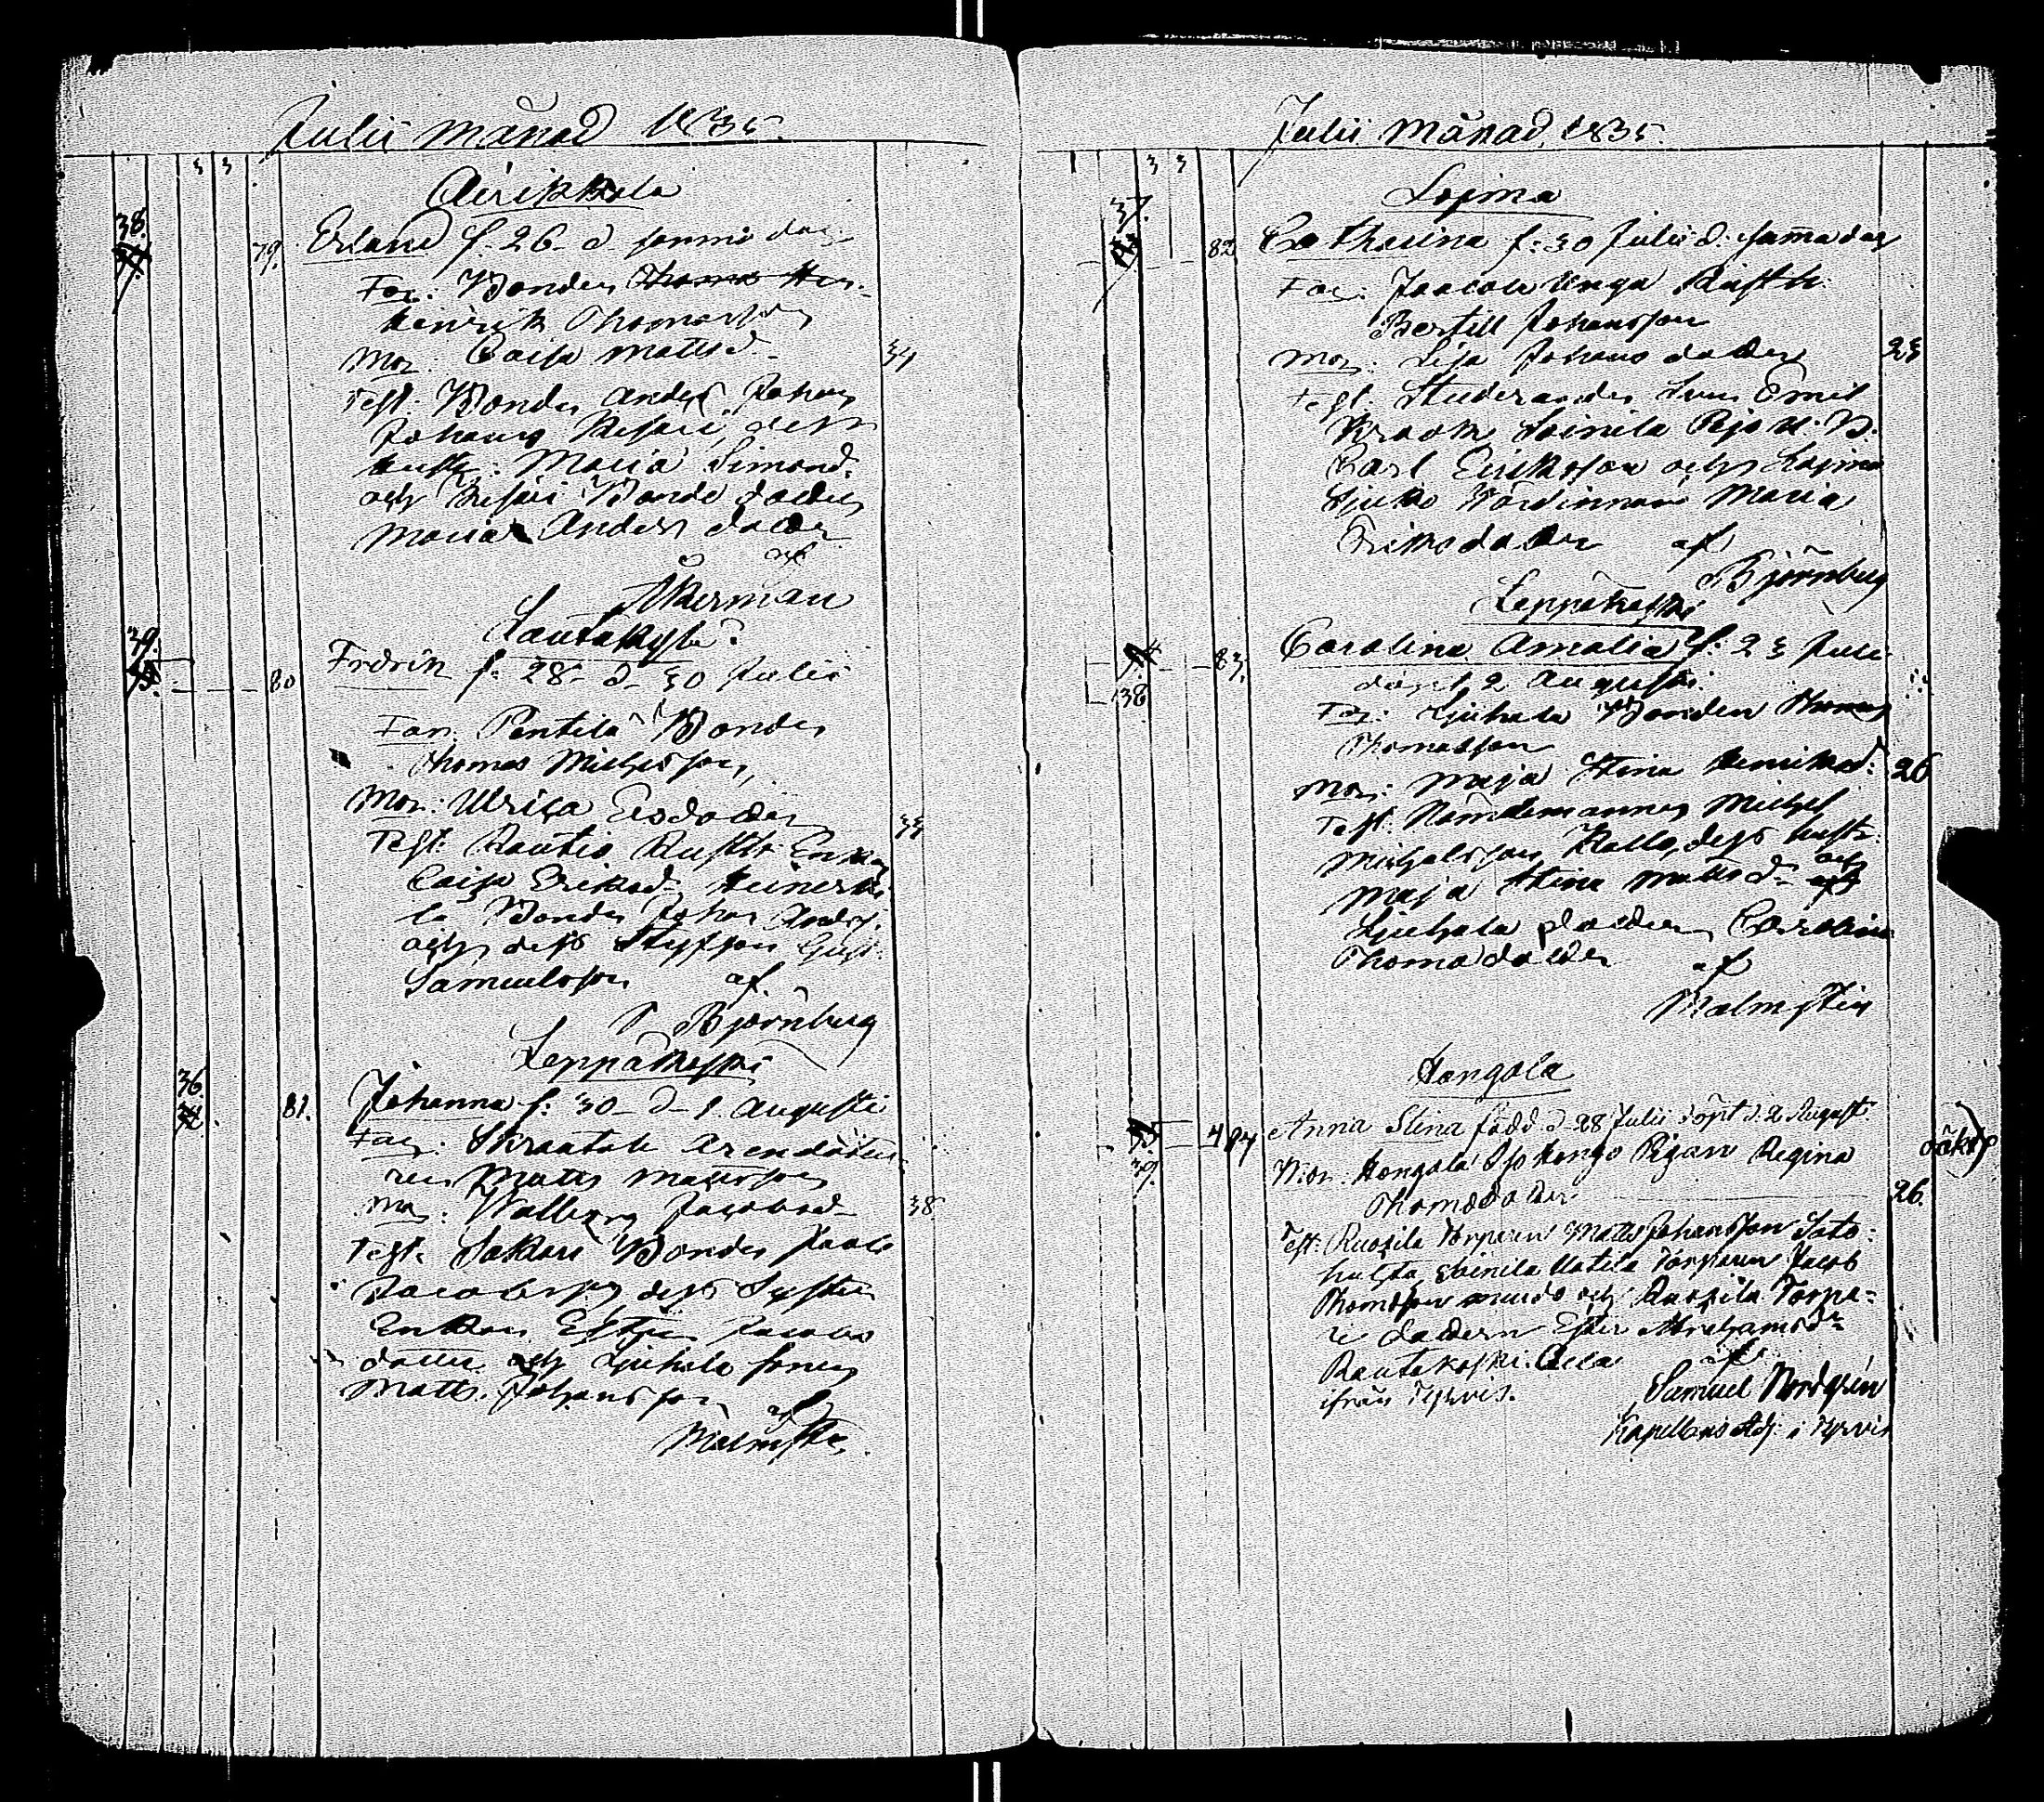 Julii månad 1835.
Äirikkala
38.
79. Erland f. 26 d. samma dag
Far: Bonden Thomas Hen-
Henrik Thomasson
Mor: Caisa Mattsd. 34
Test: Bonden Anders Johans
Johans dess
hustr: Maria Simonsd.
och Bonde dottren
Maria Anders dotter
af
Åkerman
Lautakylä
39.
80 Fredrik f. 28 d. 30 Julii
Far: Pentilä Bonden
Thomas Michelsson,
Mor: Ulrica Ersdotter 33
Test: Rautio Rustht Enkan
Caisa Eriksd. Heinerki-
la Bonden Johan Anders.
och dess Styfson Gust.
Samuelsson af
Björnberg
Leppäkoski
36.
81. Johanna f: 30 d. 1 Augusti
Far: Skraatali Arendato-
ren Matts Mattsson
Mor: Walborg Jacobsd. 38
Test: Sakari Bonden Jacob
Jacobsson dess Syster
Enkan Esther Jacobs
dotter och Ljuhala sonen
Matts Johansson
af
Malmstn.
Julii Månad, 1835.
Lojma
37.
82 Catharina f: 30 Julii d. samma dag
Far: Jaacola unga Rusth.
Bertill Johansson
Mor: Lisa Johans dotter 23
Test: Studeranden Sven Emil
Krook Soinila B.
Carl Eriksson och Lojma
Sjukko Wärdinnan Maria
Eriks dotter af
Björnberg
Leppäkoski
83. Carolina Amalia f: 23 Julii
38
döpt 2 Augusti.
Far: Ljuhala Bonden Thomas
Thomasson
Mor: Maja Stina Henriksd: 26
Test: Nämdemannen Michel
Michelsson Kallo, dess hustr.
Maja Stina Mattsd. och
Ljuhala dottren Carolina
Thomas dotter af
Malmsten
Hongola
4 84 Anna Stina född d. 28 Julii döpt d. 2 August. oäkta
39.
Mor: Hongola Sjo Hongo Pigan Regina
Thomsdotter 26.
Test: Ruojila Torparen Matts Johansson Sato-
hulta, Soinila Uotila Torparen Jacob
Thomsson och Ruojila Torpa-
re dottren Ester Abrahamsdr
Rautakoski. Alla af
ifrån Tyrvis. Samuel Nordgrén
Kapellans Adj: i Tyrvis